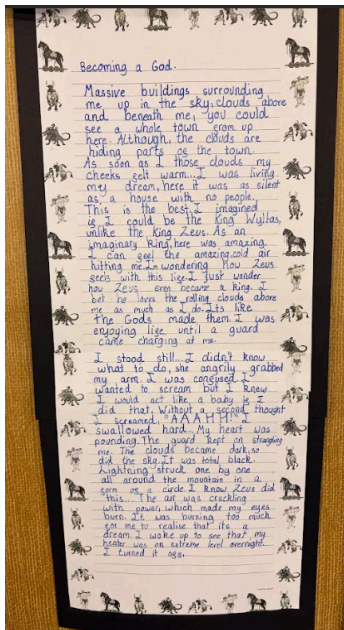 Becoming a God.
Massive buildings surrounding
me up in the sky, clouds above
and beneath me, you could
see a whole town from up
here. Although, the clouds are
hiding parts of the town.
As soon as I those clouds my
cheeks felt warm... I was living
my dream, here it was as silent
as a house with no people.
This is the best. I imagined
if I could be the king
unlike the king Zeus. As an
imaginary king, here was amazing.
I can feel the amazing, cold air
hitting me. I wondering how Zeus
feels with this life. I just wonder
how Zeus even became a king. I
bet he loves the rolling clouds above
me as much as I do. Its like
the Gods made them. I was
enjoying life until a guard
came charging at me.
I stood still... I didn't know
what to do, she angrily grabbed
my arm. I was confused. I
wanted to scream but I knew
I would act like a baby if I
did that. Without a second thought
I screamed, "AAAHH!" I
swallowed hard. My heart was
pounding. The guard kept on strangling
me. The clouds became dark, so
did the sky. It was total black.
Lightning struck one by one
all around the mountain in a
form of a circle. I know Zeus did
this... The air was crackling
with power which made my eyes
burn. It was burning too much
for me to realise that its a
dream. I woke up to see, that my
heater was on extreme level overnight.
I turned it off.